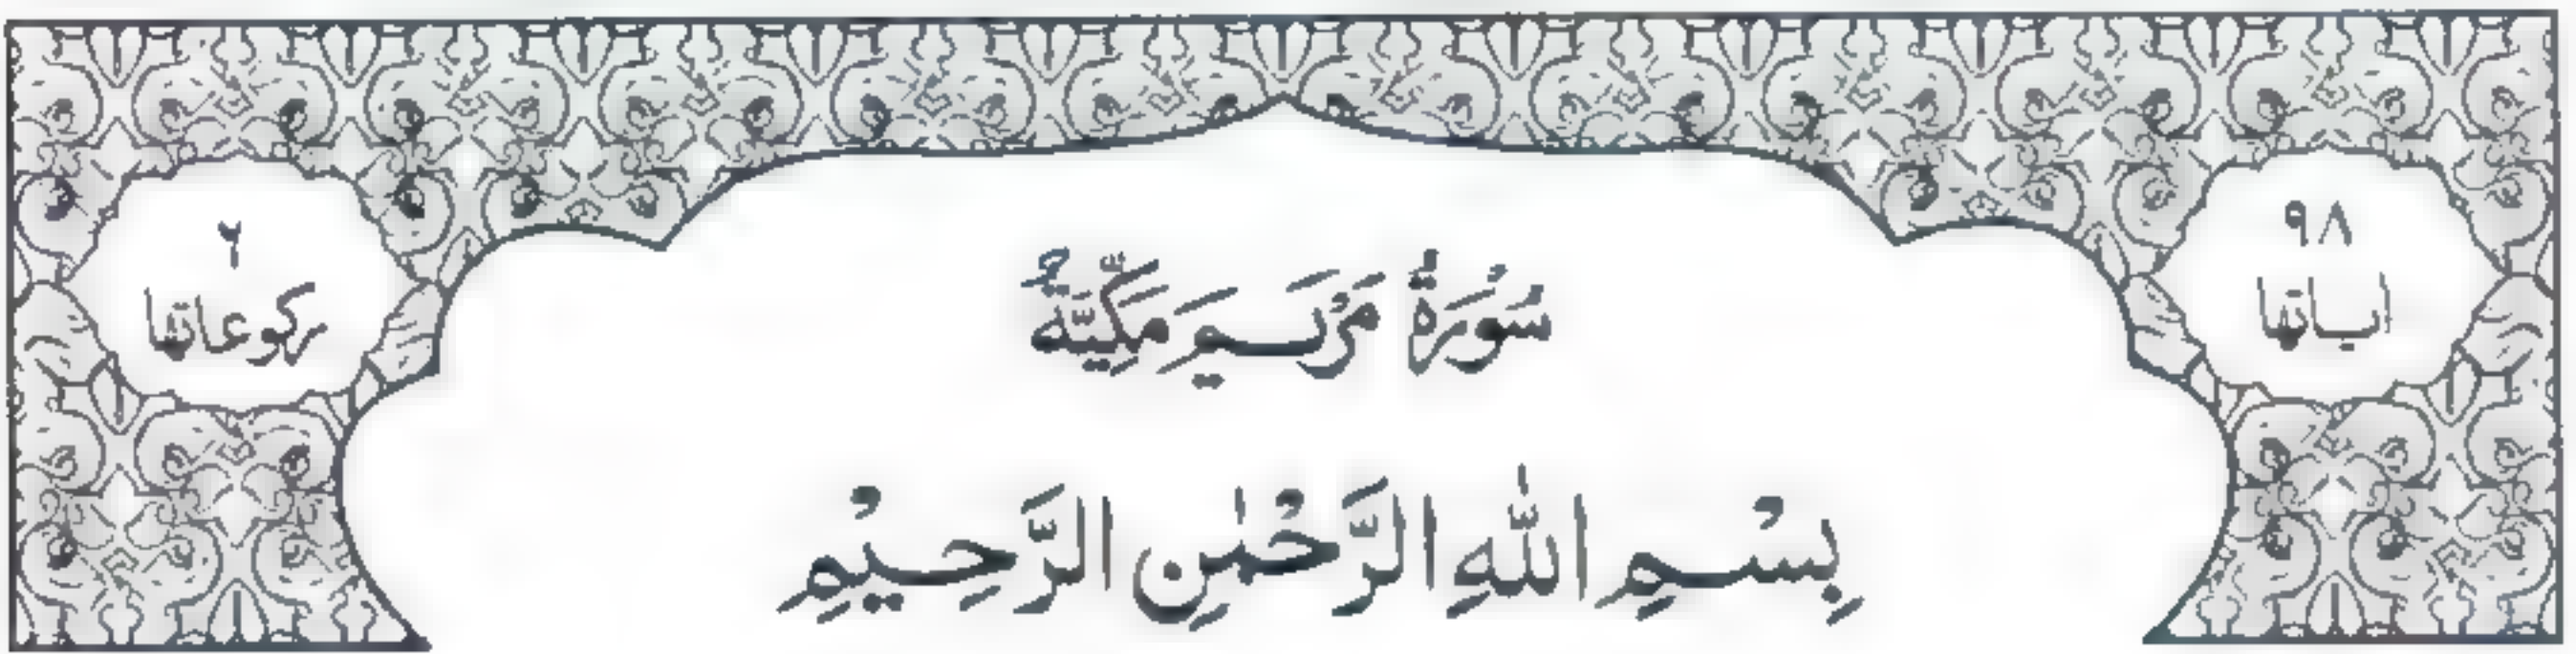 ٩٨
اٰیاتها
سُوْرَةُ مَرْیَمَ مَكِّیَّةٌ
٢
ركوعاتها
بِسْمِ اللّٰهِ الرَّحْمٰنِ الرَّحِیْمِ